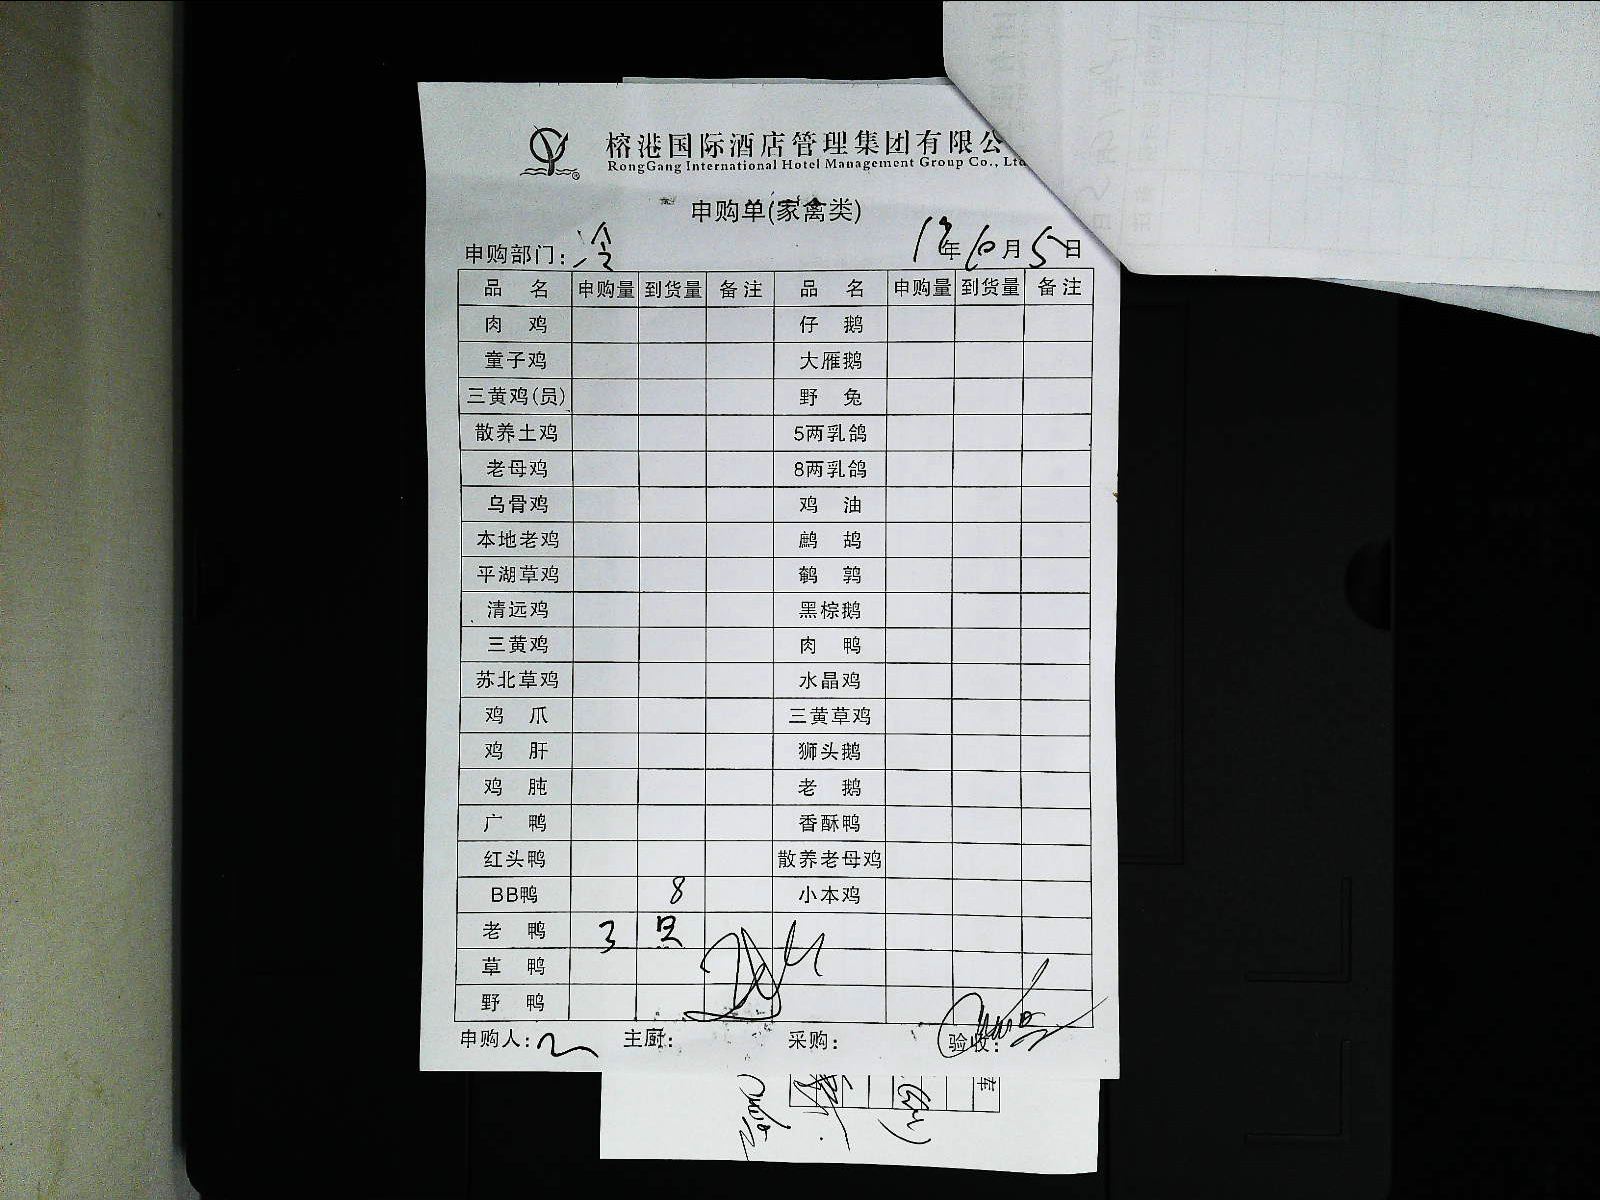 榕港国际酒店管理集团有限公
RongGang International Hotel Management Group Co., Ltd
申购单(家禽类)
申购部门: 冷 年 10 月 5 日
品名 申购量 到货量 备注 品名 申购量 到货量 备注
肉鸡 仔鹅
童子鸡 大雁鹅
三黄鸡(员) 野兔
散养土鸡 5两乳鸽
老母鸡 8两乳鸽
乌骨鸡 鸡油
本地老鸡 鹧鸪
平湖草鸡 鹌鹑
清远鸡 黑棕鹅
三黄鸡 肉鸭
苏北草鸡 水晶鸡
鸡爪 三黄草鸡
鸡肝 狮头鹅
鸡肫 老鹅
广鸭 香酥鸭
红头鸭 散养老母鸡
BB鸭 8 小本鸡
老鸭 3 只
草鸭
野鸭
申购人: 主厨: 采购: 验收: